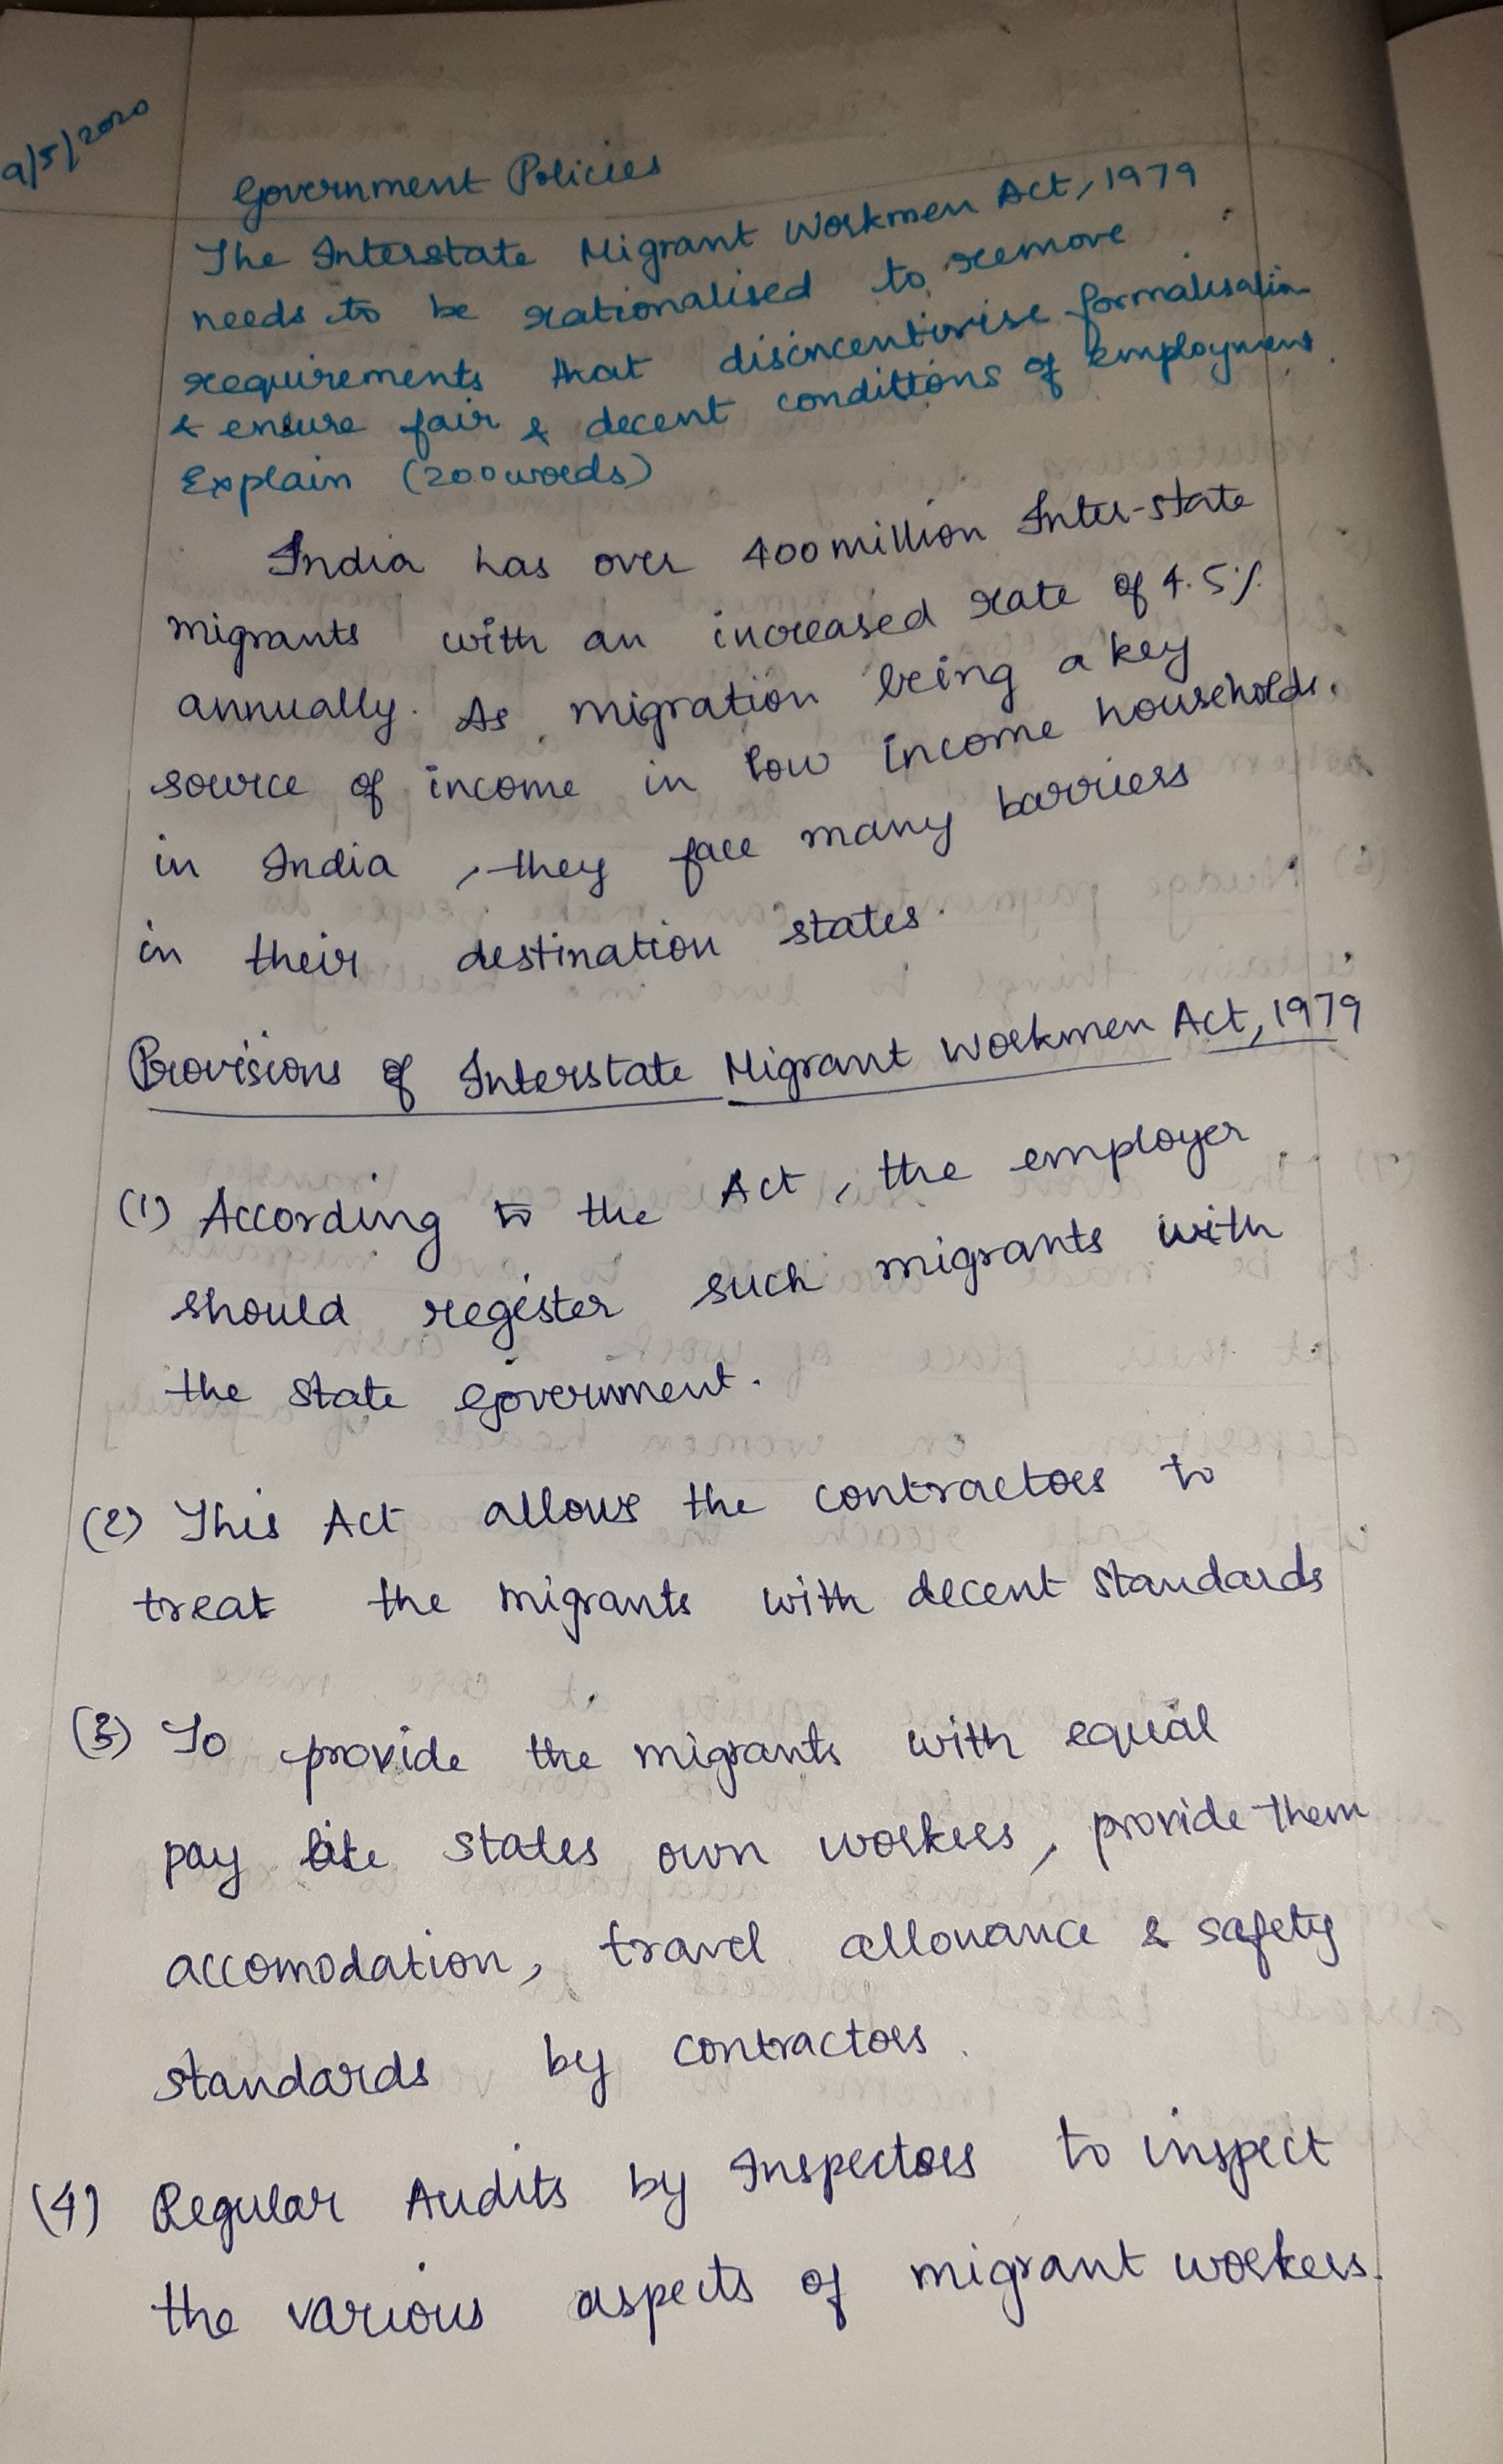 9/5/2020
Government Policies
The Interstate Migrant Workmen Act, 1979
needs to be rationalised to remove
requirements that disincentivise formalisation
& ensure fair & decent conditions of employment.
Explain (200 words)
India has over 400 million Inter-state
migrants with an increased rate of 4.5%
annually. As migration being a key
source of income in low income households.
in India, they face many barriers
in their destination states.
Provisions of Interstate Migrant Workmen Act, 1979
(1) According to the Act, the employer
should register such migrants with
the state government.
(2) This Act allows the contractors to
treat the migrants with decent standards
(3) To provide the migrants with equal
pay like states own workers, provide them
accomodation, travel allowance & safety
standards by contractors.
(4) Regular Audits by Inspectors to inspect
the various aspects of migrant workers.